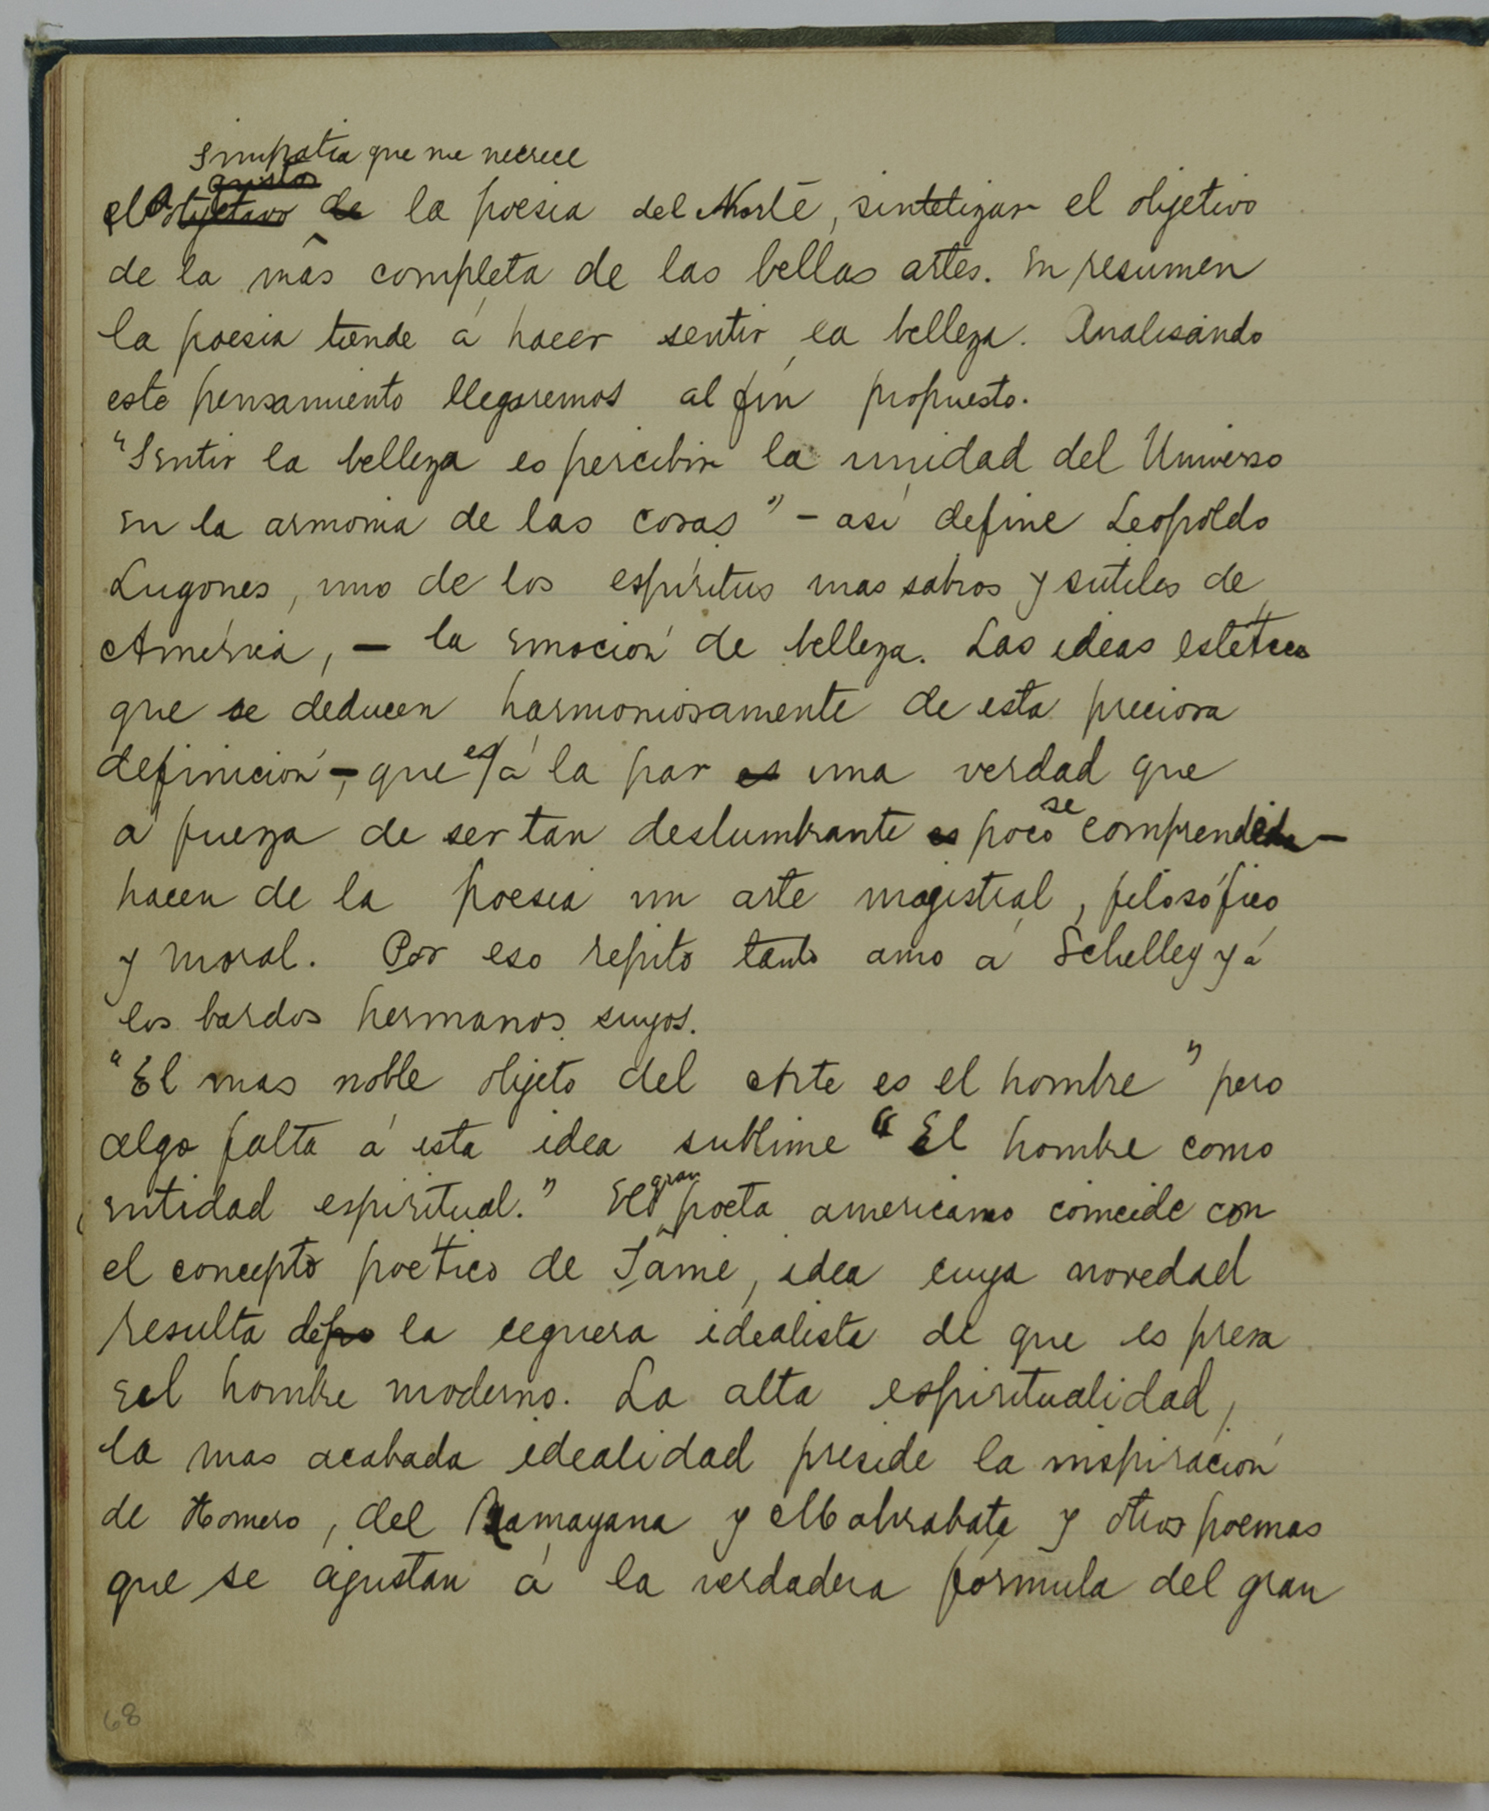 simpatia que me merece
gustos
el objetivo de la poesia del Norte, sintetizar el objetivo
de la más completa de las bellas artes. En resumen
la poesia tiende á hacer sentir la belleza. Analisando
este pensamiento llegaremos al fin propuesto.
"Sentir la belleza es percibir la unidad del Universo
en la armonia de las cosas" – así define Leopoldo
Lugones, uno de los espíritus mas sabios y sutiles de
América, – la emoción de belleza. Las ideas estéticas
que se deducen harmoniosamente de esta preciosa
definición –, que es á la par es una verdad que
á fuerza de ser tan deslumbrante es poco se comprendida –
hacen de la poesia un arte magistral, filosófico
y moral. Por eso repito tanto amo á Schelley y á
los bardos hermanos suyos.
"El mas noble objeto del Arte es el hombre" pero
algo falta á esta idea sublime "El hombre como
entidad espiritual." El gran poeta americano coincide con
el concepto poético de Taine, idea cuya novedad
resulta de la ceguera idealista de que es presa
el hombre moderno. La alta espiritualidad,
la mas acabada idealidad preside la inspiración
de Homero, del Ramayana y Mabarabata y otros poemas
que se ajustan á la verdadera fórmula del gran
68